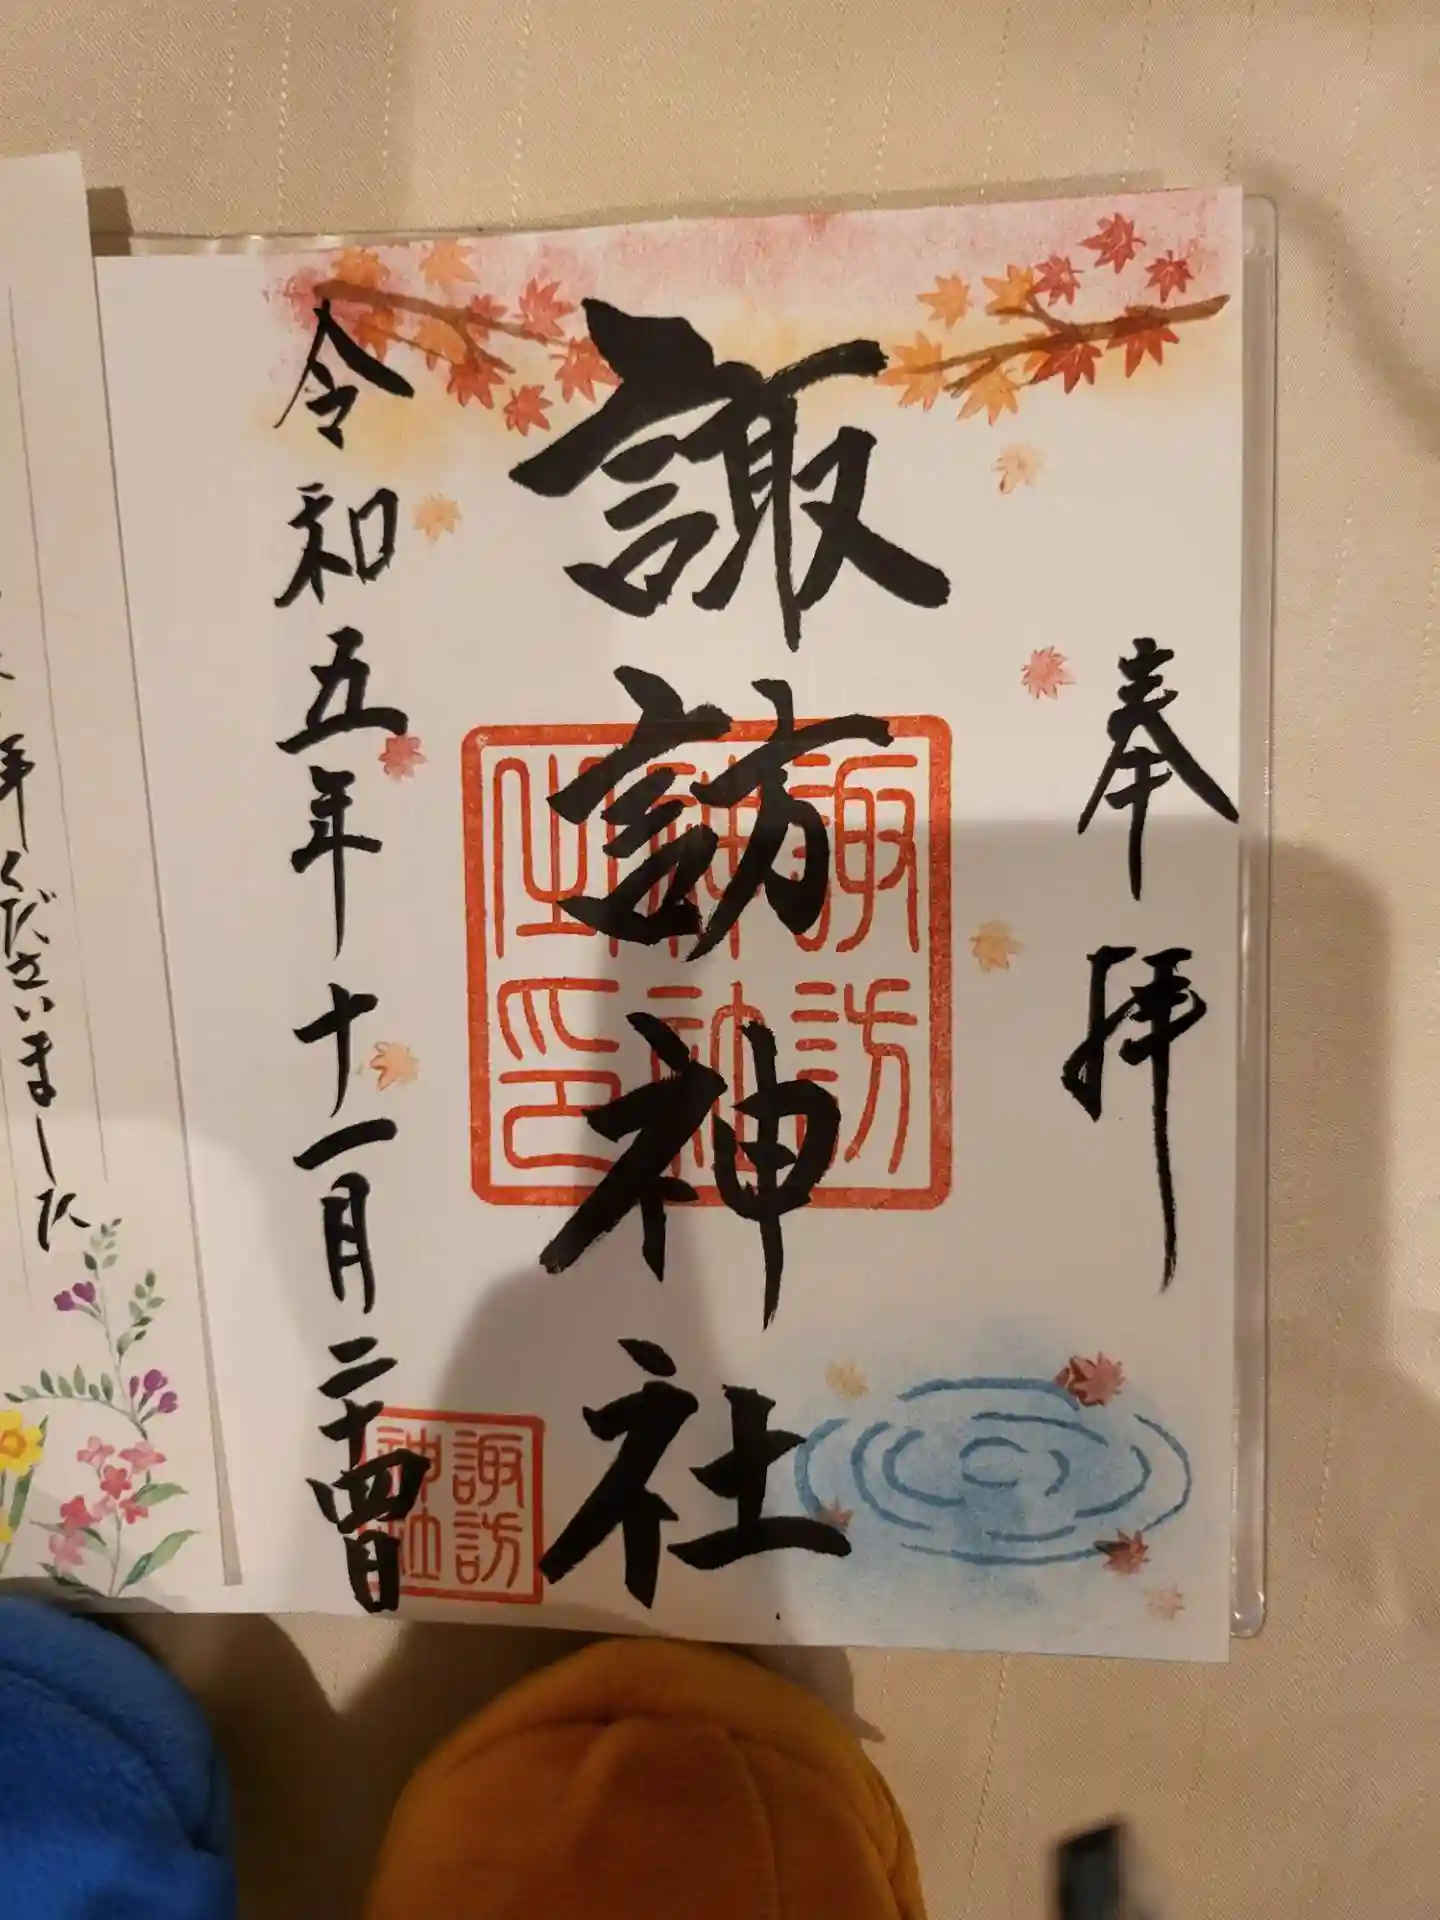 奉拝
諏訪神社
諏訪
神社
之印
諏訪
神社
令和五年十一月二十四日
拝くださいました